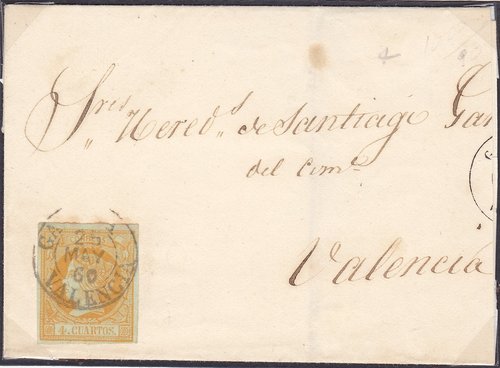 Sres Hereds de Santiago Gar
del Comº
Valencia
25
MAY
60
VALENCIA
4 CUARTOS.